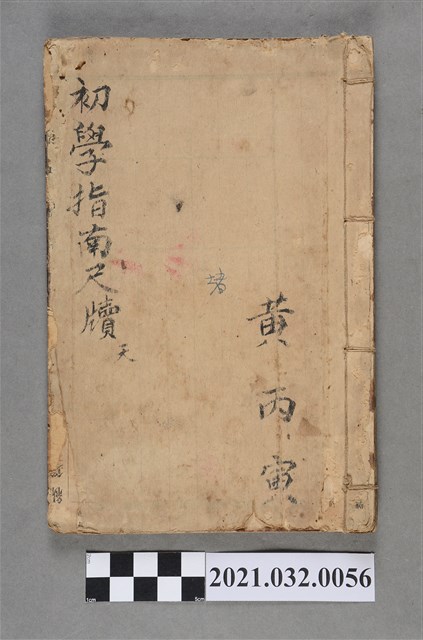 初學指南尺牘
天
黃丙寅
2021.032.0056
1cm
5cm